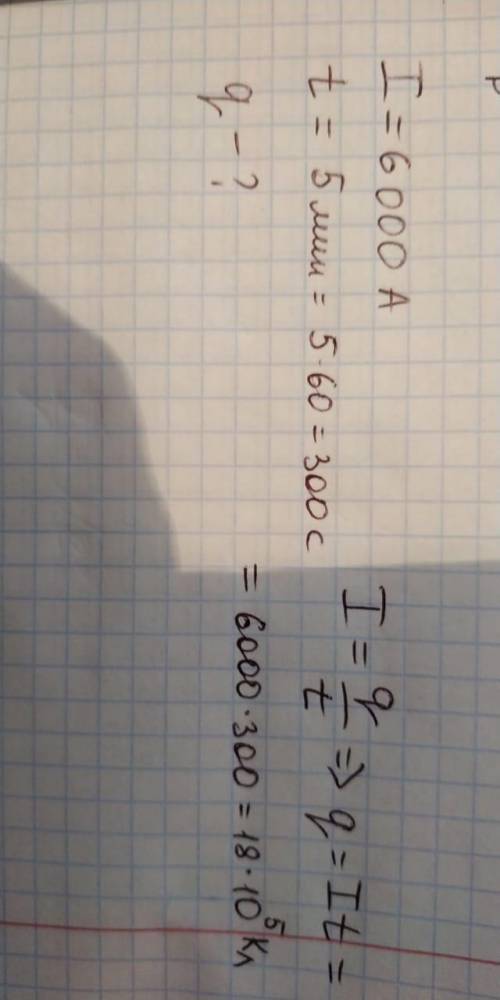 I = 6000 А
t = 5 мин = 5·60 = 300 с
q - ?
I = q/t => q = It =
= 6000·300 = 18·10⁵ Кл